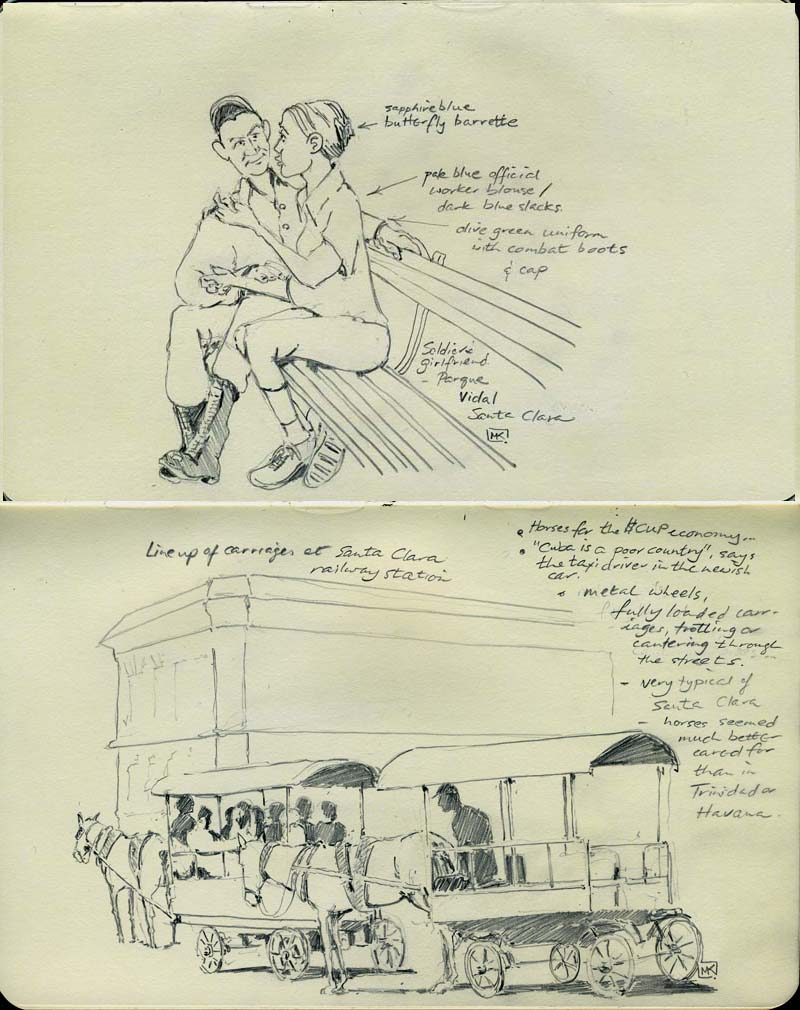 sapphire blue
butterfly barrette
pale blue official
worker blouse /
dark blue slacks.
olive green uniform
with combat boots
& cap
Soldier's
girlfriend
- Parque
Vidal
Santa Clara
MK
Lineup of carriages at Santa Clara
railway station
• Horses for the CUP economy...
• "Cuba is a poor country", says
the taxi driver in the newish
car.
• metal wheels,
fully loaded carr-
iages, trotling or
cantering through
the streets.
- very typical of
Santa Clara
- horses seemed
much better
cared for
than in
Trinidad or
Havana.
MK